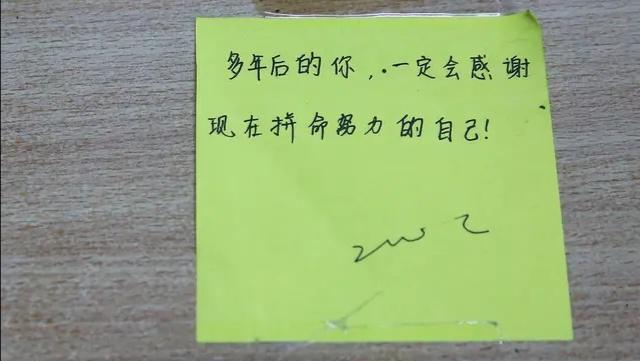 多年后的你，一定会感谢
现在拼命努力的自己！